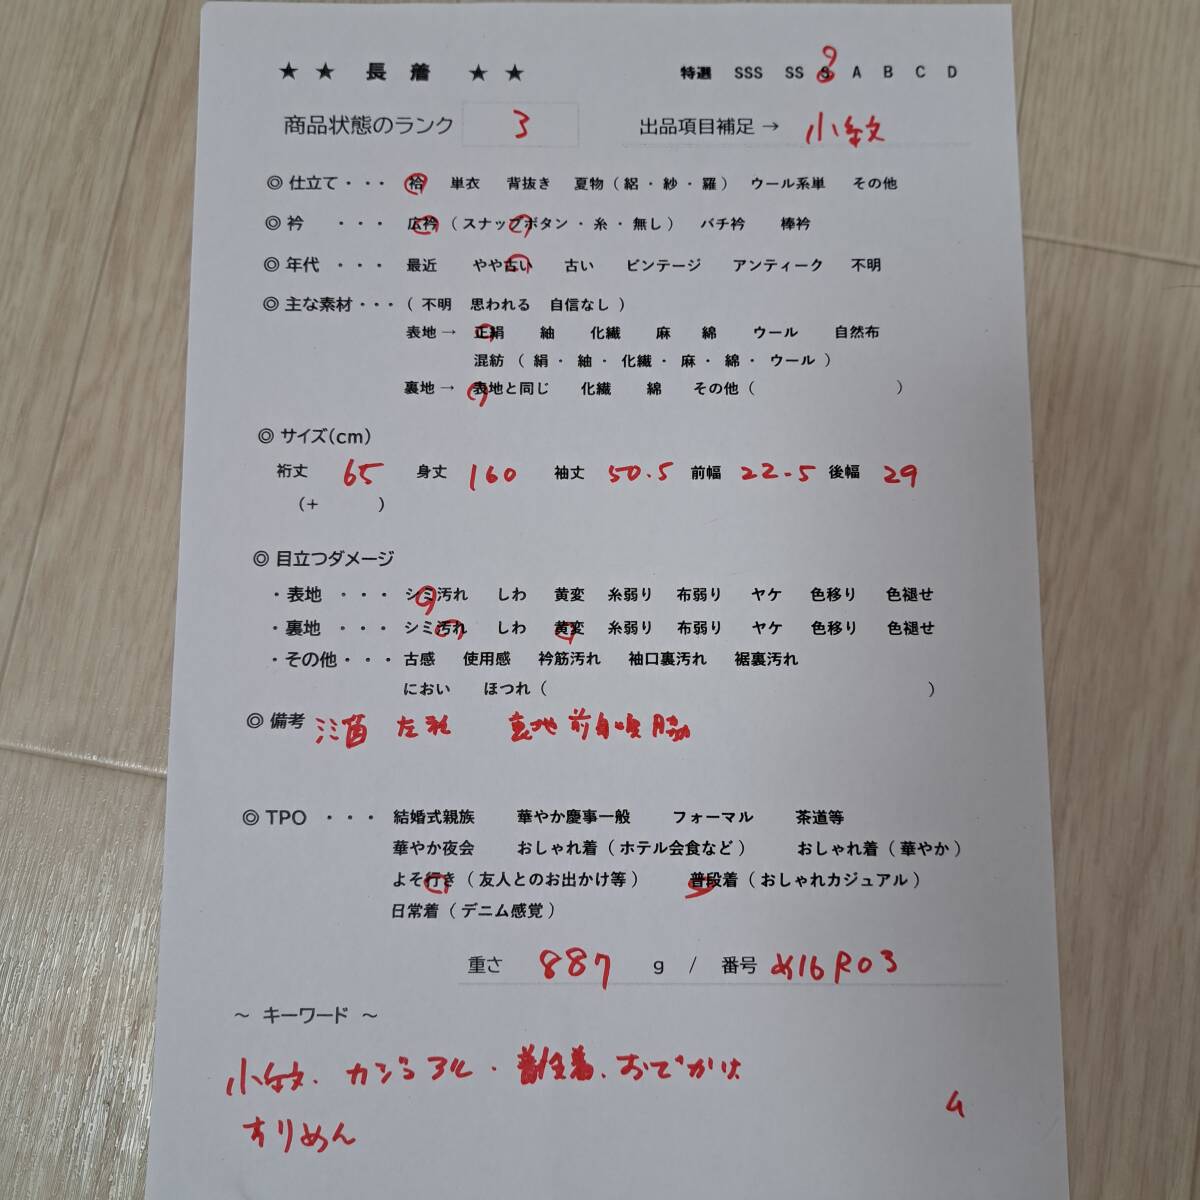 ★ ★ 長 着 ★ ★ 特選 SSS SS S A B C D
商品状態のランク 3 出品項目補足 → 小紋
◎ 仕立て・・・ 袷 単衣 背抜き 夏物 ( 絽 ・ 紗 ・ 羅 ) ウール系単 その他
◎ 衿 ・・・ 広衿 ( スナップボタン ・ 糸 ・ 無し ) バチ衿 棒衿
◎ 年代 ・・・ 最近 やや古い 古い ビンテージ アンティーク 不明
◎ 主な素材・・・( 不明 思われる 自信なし )
表地 → 正絹 紬 化繊 麻 綿 ウール 自然布
混紡 ( 絹 ・ 紬 ・ 化繊 ・ 麻 ・ 綿 ・ ウール )
裏地 → 表地と同じ 化繊 綿 その他 ( )
◎ サイズ(cm)
裄丈 65 身丈 160 袖丈 50.5 前幅 22.5 後幅 29
(+ )
◎ 目立つダメージ
・表地 ・・・ シミ汚れ しわ 黄変 糸弱り 布弱り ヤケ 色移り 色褪せ
・裏地 ・・・ シミ汚れ しわ 黄変 糸弱り 布弱り ヤケ 色移り 色褪せ
・その他・・・ 古感 使用感 衿筋汚れ 袖口裏汚れ 裾裏汚れ
におい ほつれ ( )
◎ 備考 左 裏地 前身頃 脇
◎ TPO ・・・ 結婚式親族 華やか慶事一般 フォーマル 茶道等
華やか夜会 おしゃれ着 ( ホテル会食など ) おしゃれ着 ( 華やか )
よそ行き ( 友人とのお出かけ等 ) 普段着 ( おしゃれカジュアル )
日常着 ( デニム感覚 )
重さ 887 g / 番号 め16R03
～ キーワード ～
小紋・カジュアル・普段着、おでかけ
ちりめん